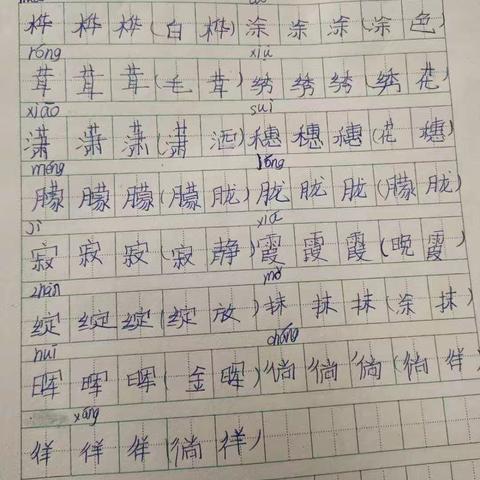 桦桦桦(白桦)涂涂涂(涂色)
róng xiù
茸茸茸(毛茸)绣绣绣(绣花)
xiāo suì
潇潇潇(潇洒)穗穗穗(花穗)
méng lóng
朦朦朦(朦胧)胧胧胧(朦胧)
jì xiá
寂寂寂(寂静)霞霞霞(晚霞)
zhàn mǒ
绽绽绽(绽放)抹抹抹(涂抹)
huī cháng
晖晖晖(金晖)徜徜徜(徜徉)
yáng
徉徉徉(徜徉)